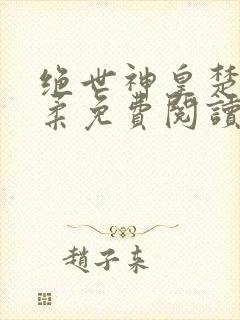 绝世神皇楚
柔免費閱讀
趙子来